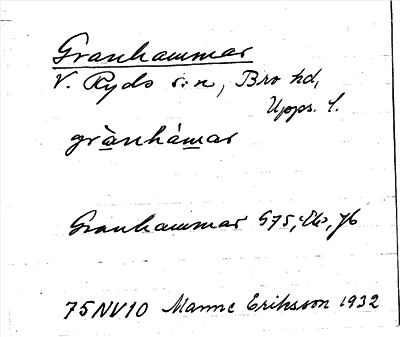 Granhammar
V. Ryds sn, Bro hd,
Upps. l.
grànhámar
Granhammar G75, Ek, jb
75NV10 Manne Eriksson 1932